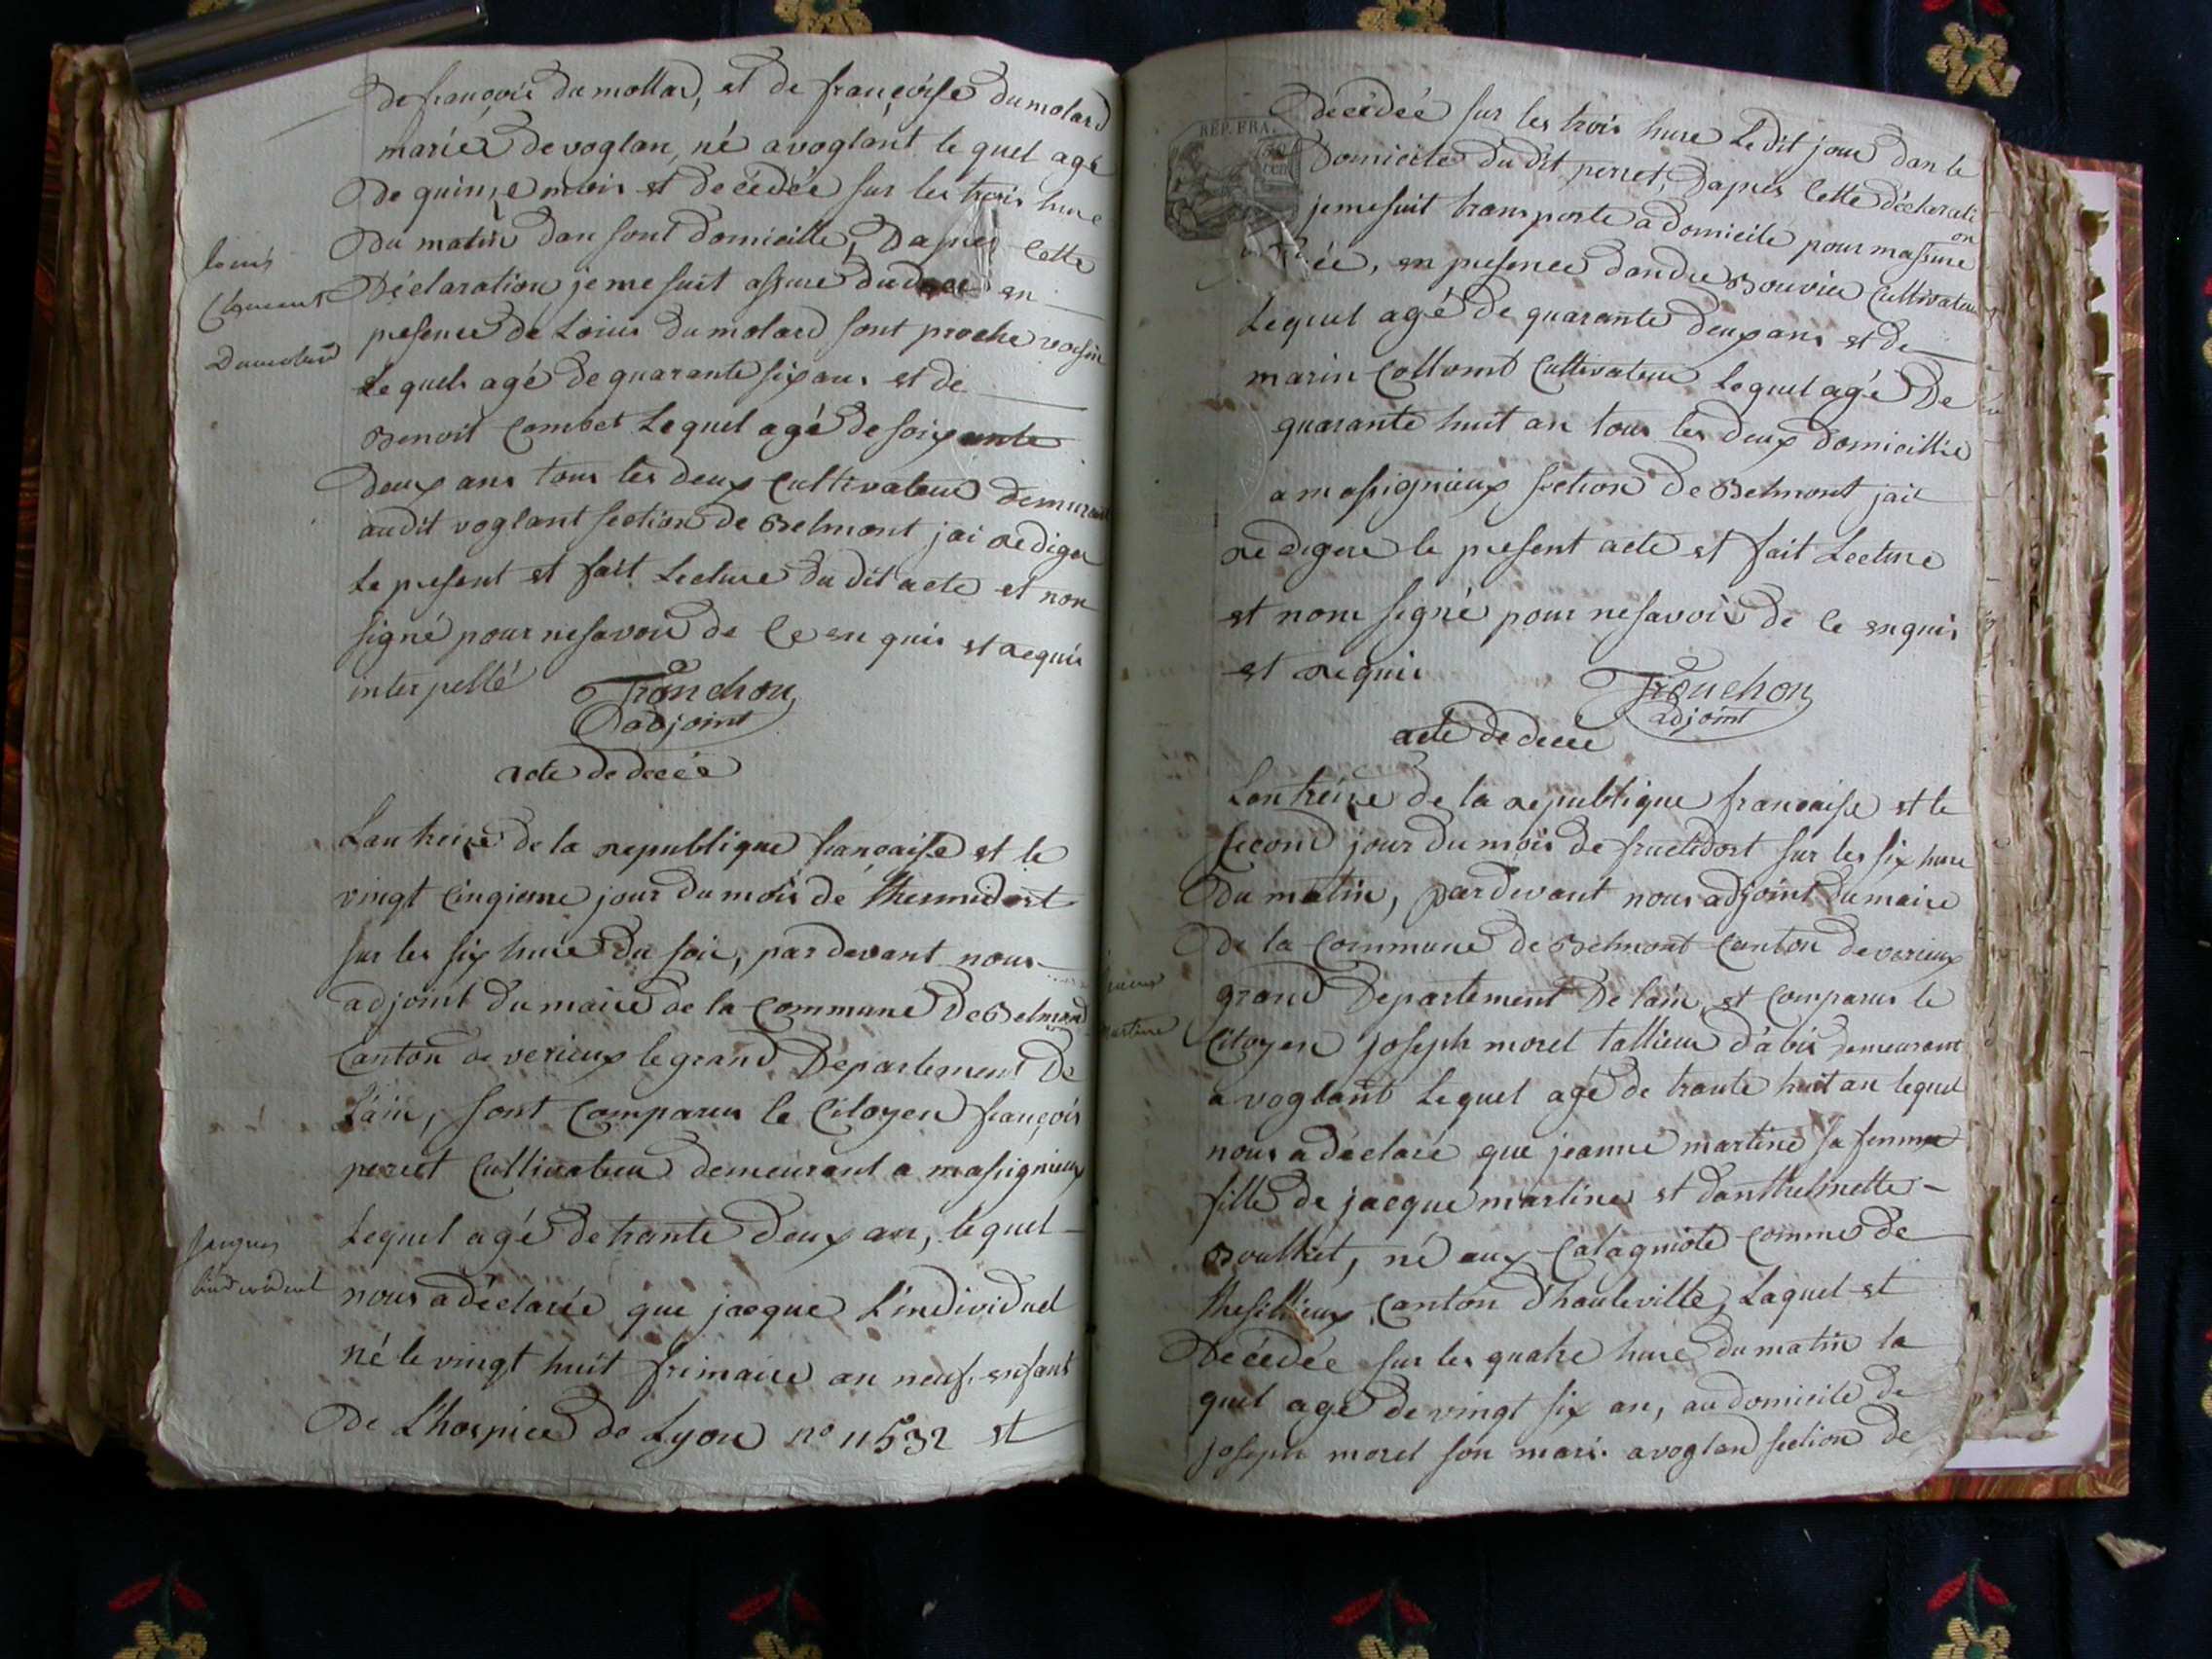 de françois du mollad, et de françoise dumolard
mariéz de voglan, né a voglant le quel agé
de quinze mois et décédée sur les trois hure
du matin dan sont domicille, Daprés cette
Louis
Clement
Dumolard
Déclaration je me suit assuré du en
presence de Loius du molard sont proche voisin
Le quels agé de quarante six ans et de
Benoit Combet Le quel agé de soixante
deux ans tous les deux cultivateur demurant
audit voglant section de Belmont jai rediger
Le present et fait Lecture du dit acte et non
signé pour ne savoir de Ce en quis et requis
interpellé
Tronchon
adjoint
acte de décés
Lan treize de la republique francaise et le
vingt cinqieme jour du mois de thermidort
sur les six hure du soir, par devant nous
adjoint du maire de la Commune de Belmond
Canton de verieux le grand Département de
Lain, sont Comparus le Citoyen françois
perret Cultivateur demeurant a massignieux
Lequel agé de trante deux an, le quel
jacques
lindividuel
nous a déclarée que jacque L'individuel
né le vingt huit frimaire an neuf enfant
de L'hospice de Lyon no 11532 et
REP. FRA.
décédée sur les trois hure Ledit jour dan le
Domicile du dit perret, Daprés Cette déclarati
on
je me suit transporte a domicile pour massure
en presence dandre Bouvier Cultivateur
Lequel agé de quarante deux ans et de
marin Collomt Cultivateur Lequel agé de
quarante huit an tous les deux domicillié
a massignieux section de Belmont jait
redigere le present acte et fait Lecture
et nom signé pour ne savoir de Ce enquis
et requis
Tronchon
adjoint
acte de decee
Lan treize de la republique francaise et le
second jour du mois de fructidort sur les six hure
du matin, par devant nous adjoint du maire
de la Commune de Belmont Canton de verieux
grand Departement de lain, et Comparus le
martine
Citoyen joseph morel tallieur dabis demeurant
a voglant Lequel agé de trante huit an lequel
nous a déclaré que jeanne martine sa femme
fille de jacque martine et danthelmette
Boulliet, né aux Catagniole Comme de
thesillieux Canton d'hauteville, Laquel et
Décédée sur les quatre hure du matin la
quel agé de vingt six an, au domicile de
joseph morel son mari a voglan section de